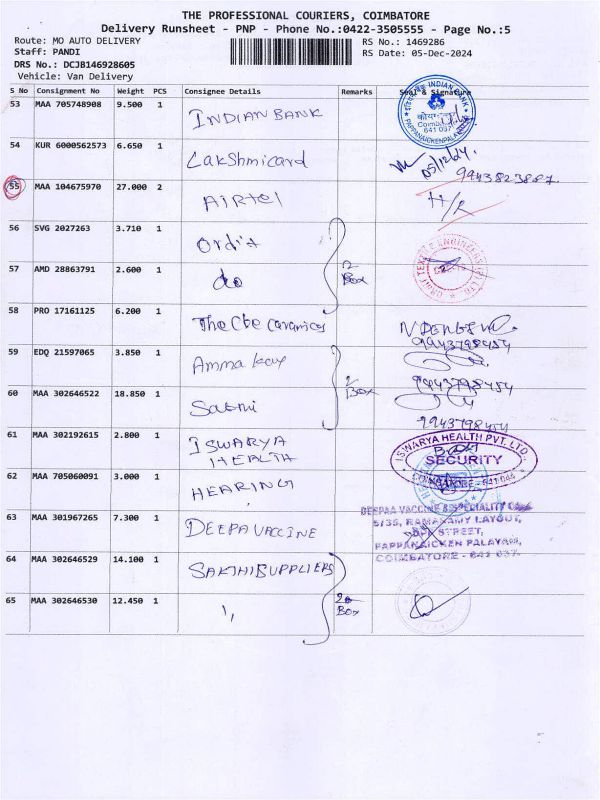 THE PROFESSIONAL COURIERS, COIMBATORE
Delivery Runsheet - PNP - Phone No.:0422-3505555 - Page No.:5
Route: MO AUTO DELIVERY
RS No.: 1469286
Staff: PANDI
RS Date: 05-Dec-2024
DRS No.: DCJB146928605
Vehicle: Van Delivery
S No Consignment No Weight PCS Consignee Details Remarks Seal & Signature
53 MAA 705748908 9.500 1 INDIAN BANK
INDIAN BANK
641 037
PAPPANAICKENPALAYAM
54 KUR 6000562573 6.650 1 Lakshmicard 05/12/24.
9943823887
55 MAA 104675970 27.000 2 AIRtel H/R
56 SVG 2027263 3.710 1
57 AMD 28863791 2.600 1 do 2 Box
58 PRO 17161125 6.200 1 The Cbe Ceramics
9943798454
59 EDQ 21597065 3.850 1 Amma kay
9443798454
60 MAA 302646522 18.850 1 Sabmi 2 Box
9943798454
61 MAA 302192615 2.800 1 ISWARYA HEALTH
ISWARYA HEALTH PVT. LTD.
SECURITY
COIMBATORE - 641 044
62 MAA 705060091 3.000 1 HEARING
63 MAA 301967265 7.300 1 DEEPA VACCINE
DEEPAA VACCINE & SPECIALITY
5/35, RAMASAMY LAYOUT,
STREET,
PAPPANAICKEN PALAYAM,
COIMBATORE - 641 037.
64 MAA 302646529 14.100 1 SAKTHI SUPPLIERS
65 MAA 302646530 12.450 1 " 2 Box